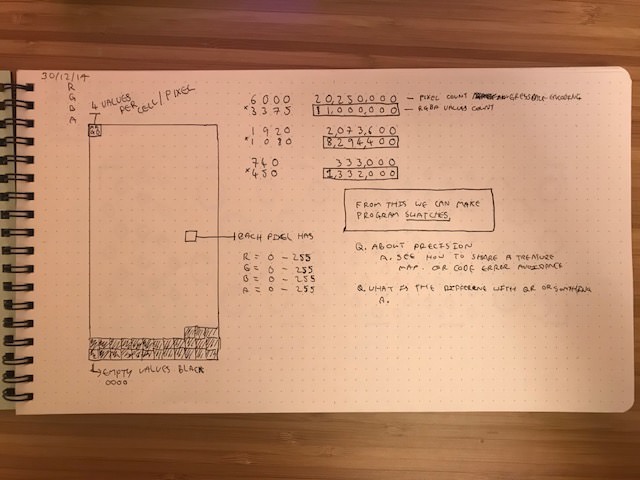 30/12/19
R
G
B
A
4 VALUES
PER
CELL/PIXEL
6000
*3375
20,250,000 — PIXEL COUNT
81,000,000 — RGBA VALUES COUNT
1920
*1080
2,073,600
8,294,400
740
*450
333,000
1,332,000
FROM THIS WE CAN MAKE
PROGRAM SWATCHES.
EACH PIXEL HAS
R = 0 - 255
G = 0 - 255
B = 0 - 255
A = 0 - 255
Q. ABOUT PRECISION
A. SEE HOW TO SHARE A TREASURE
MAP. OR CODE ERROR AVOIDANCE
Q. WHAT IS THE DIFFERENCE WITH QR OR SOMTHING
A.
EMPTY VALUES BLACK
0000